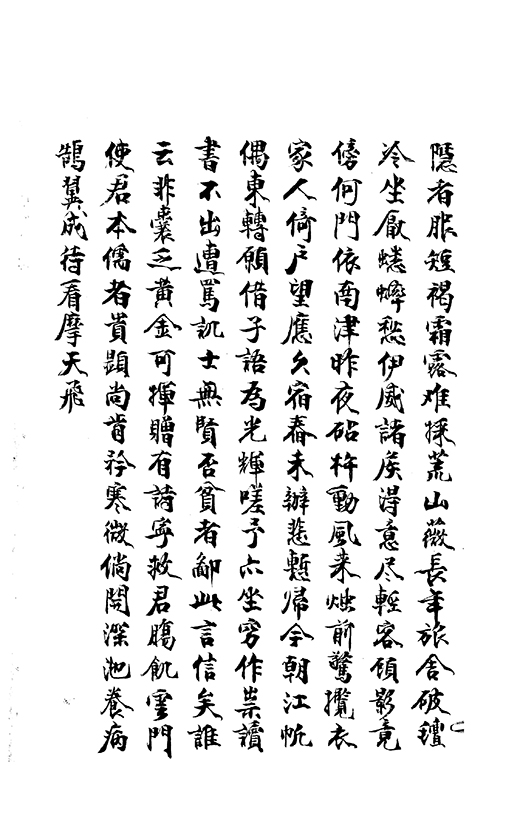 隱者服短褐霜露难採荒山薇長年旅舍破氊
冷坐厭蟋蟀愁伊威諸矦淂意尽輕客顧影竟
傍何門依南津昨夜砧杵動風来燭前驚攬衣
家人倚户望應久宿舂未辦悲蹔歸今朝江帆
偶東轉願借子語為光輝嗟予亦坐窮作祟讀
書不出遭罵譏士無賢否貧者鄙此言信矣誰
云非囊乏黄金可揮贈有詩寧救君腸飢雲門
使君本儒者貴顕尚肯矜寒微倘問深池養病
鵠翼成待看摩天飛